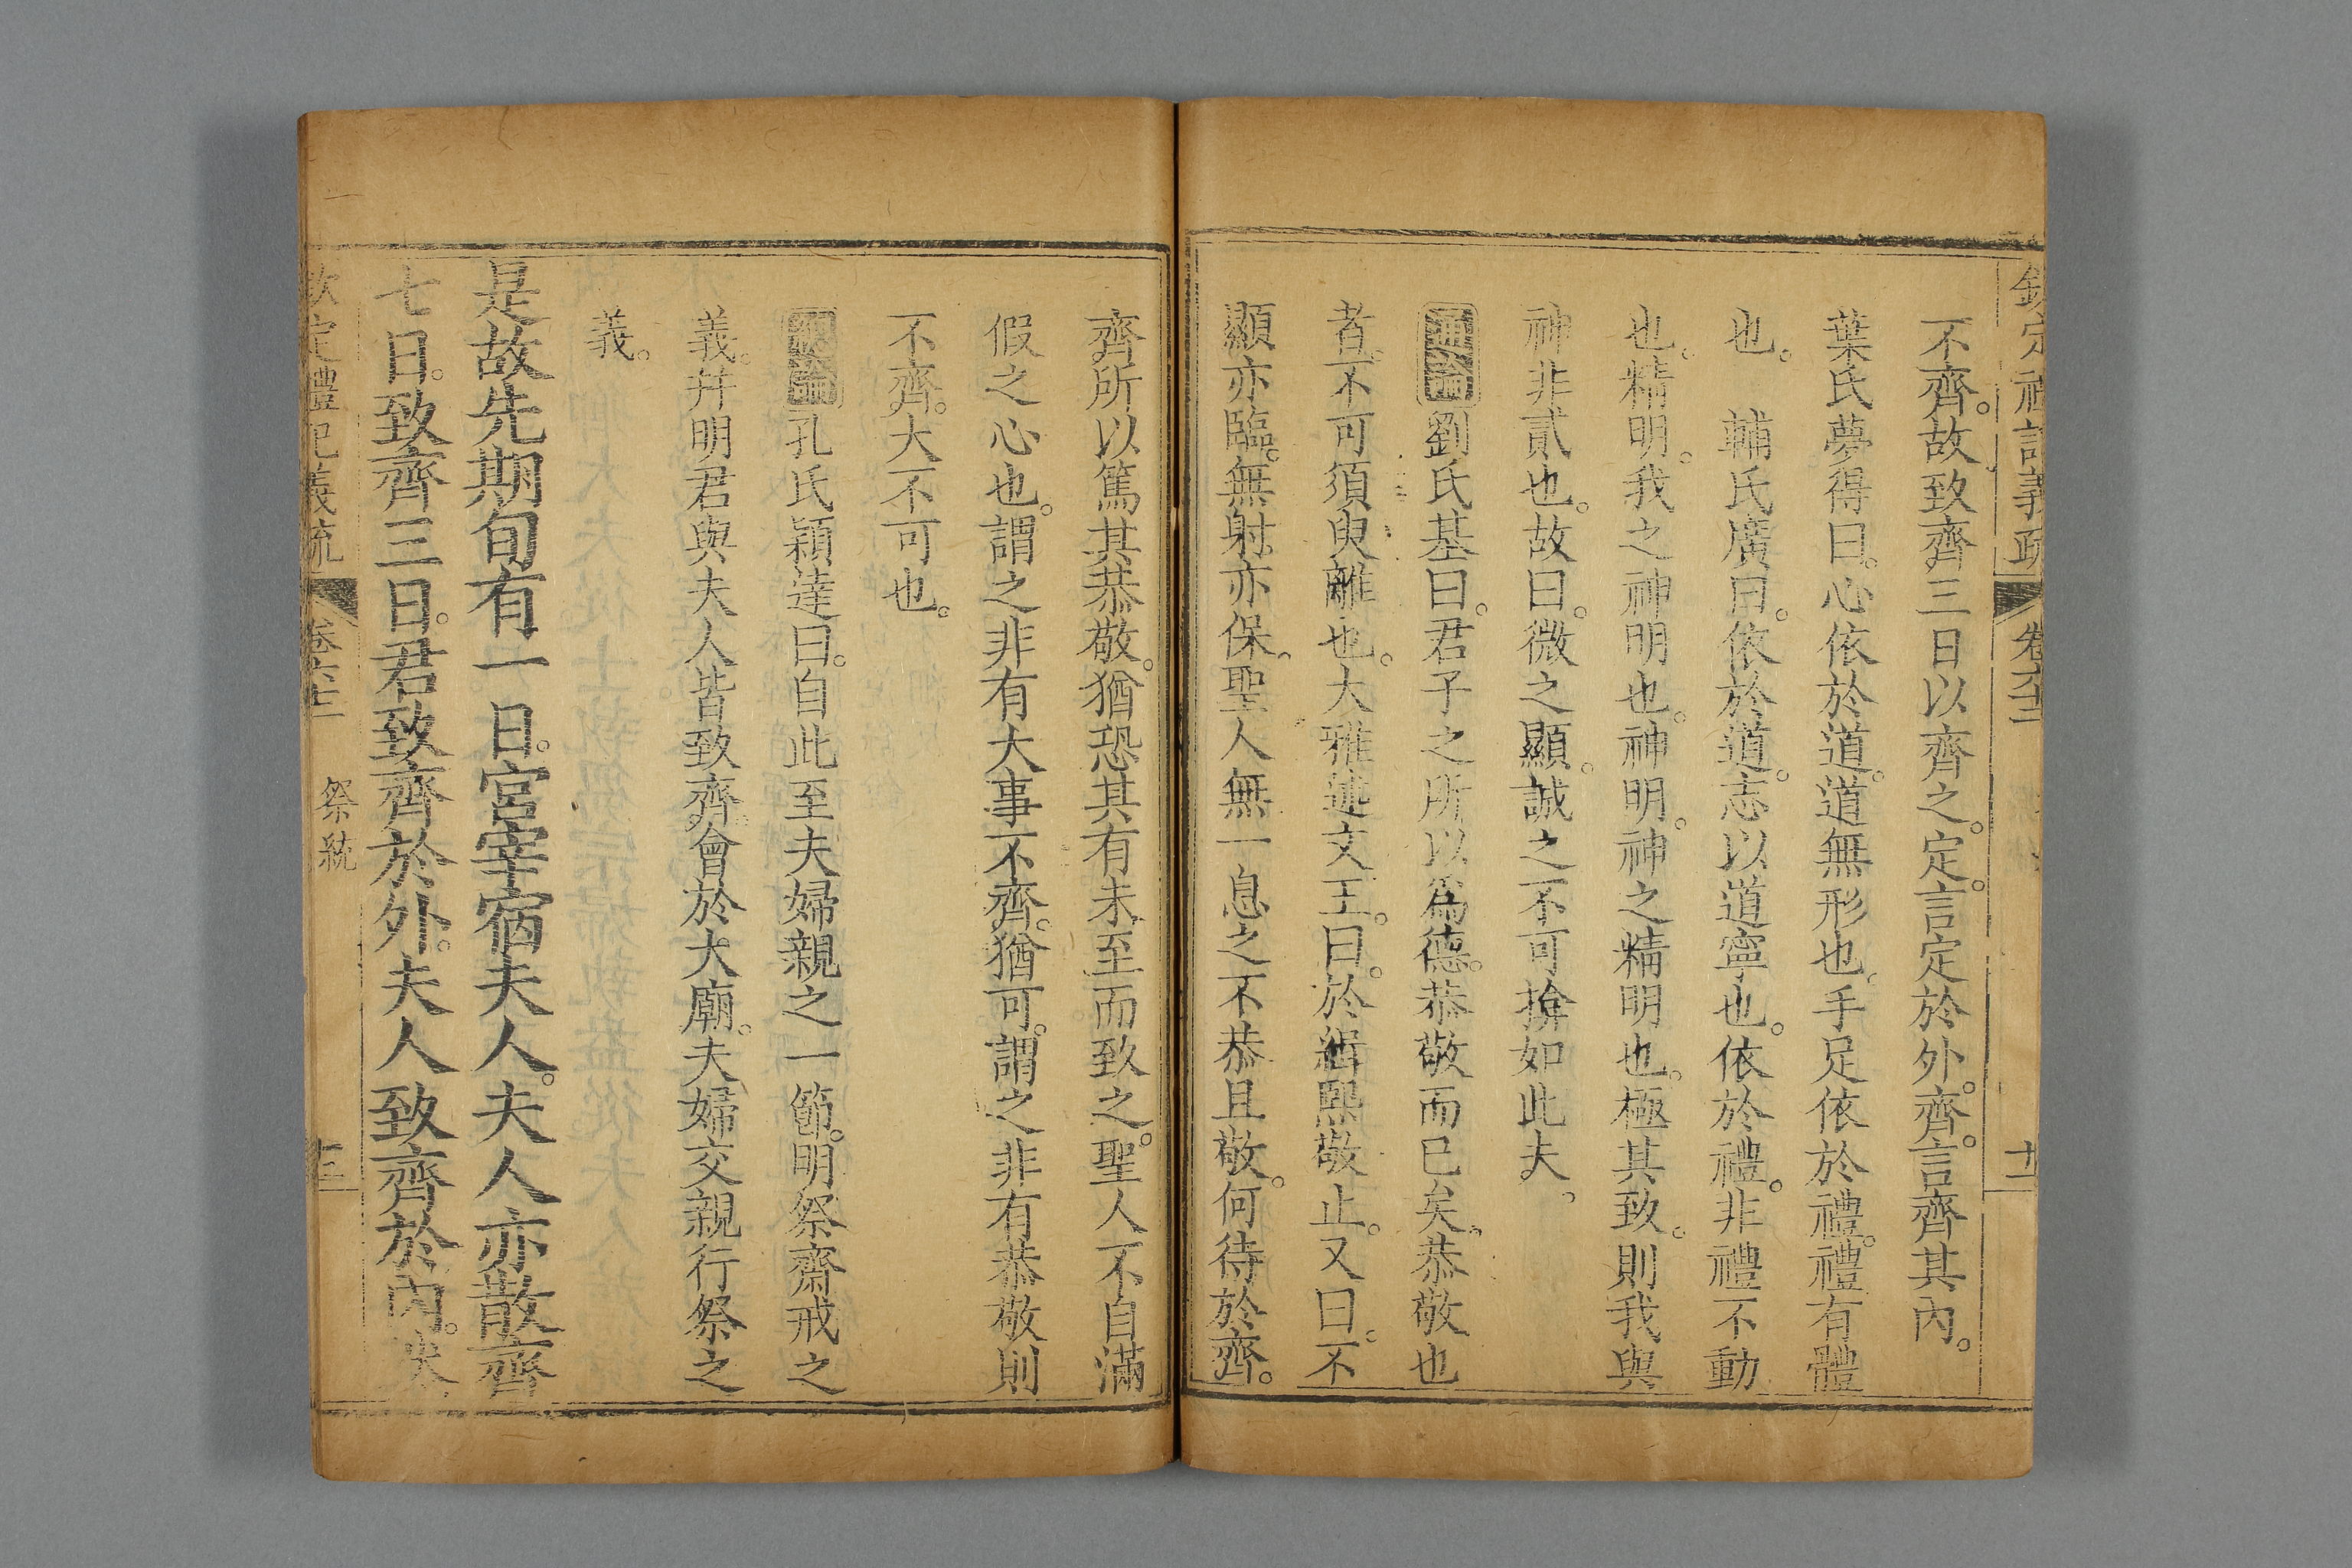 欽定禮記義疏 卷六十二 十二
不齊。故致齊三日以齊之。定。言定於外。齊。言齊其內。
葉氏夢得曰。心依於道。道無形也。手足依於禮。禮有體
也。 輔氏廣曰。依於道。志以道寧也。依於禮。非禮不動
也。精明。我之神明也。神明。神之精明也。極其致。則我與
神非貳也。故曰。微之顯。誠之不可揜如此夫。
通論劉氏基曰。君子之所以為德。恭敬而已矣。恭敬也
者。不可須臾離也。大雅述文王。曰。於緝熙敬止。又曰。不
顯亦臨。無射亦保。聖人無一息之不恭且敬。何待於齊。
齊所以篤其恭敬。猶恐其有未至而致之。聖人不自滿
假之心也。謂之非有大事不齊。猶可。謂之非有恭敬則
不齊。大不可也。
總論孔氏穎達曰。自此至夫婦親之一節。明祭齋戒之
義。并明君與夫人皆致齊。會於大廟。夫婦交親行祭之
義。
是故先期旬有一日。宮宰宿夫人。夫人亦散齊
七日。致齊三日。君致齊於外。夫人致齊於內。然
欽定禮記義疏 卷六十二 祭統 十三